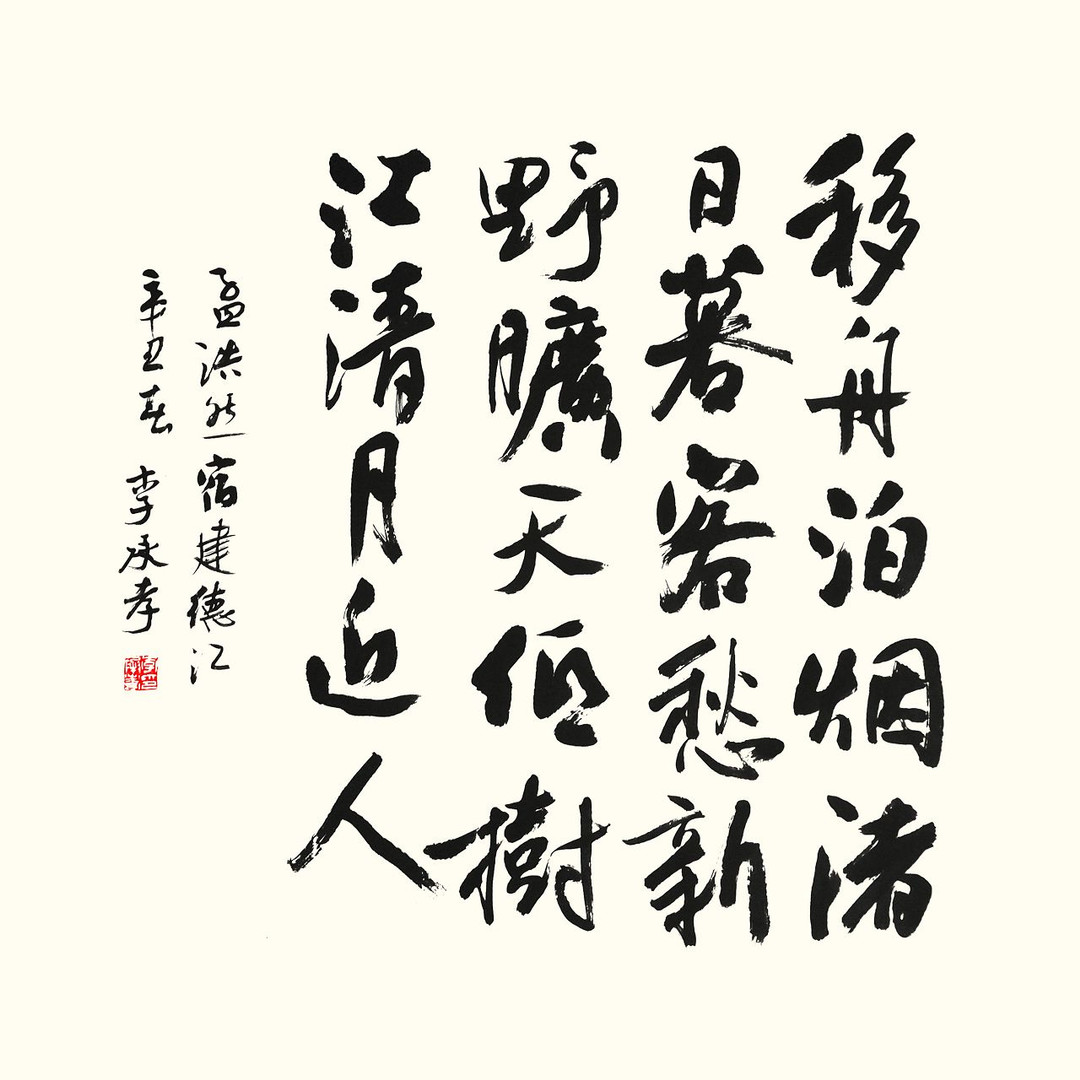 移舟泊烟渚
日暮客愁新
野曠天低樹
江清月近人
孟浩然宿建德江
辛丑春 李承孝